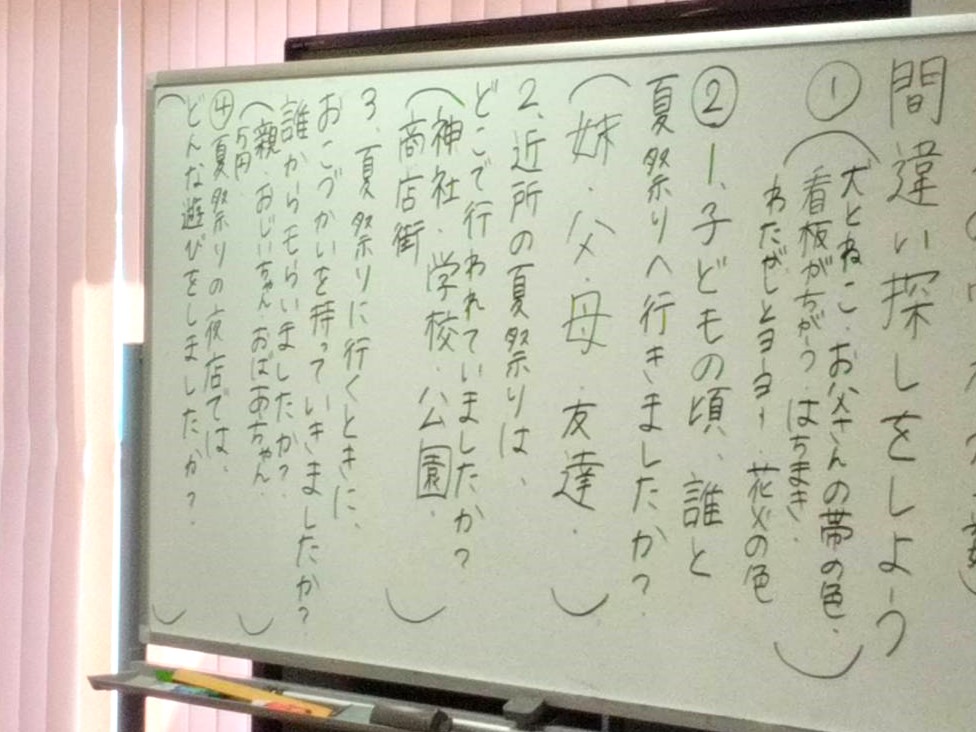 間違い探しをしよう
① (犬とねこ・お父さんの帯の色・
看板がちがう・はちまき・
わたがしとヨーヨー・花火の色)
② 1、子どもの頃、誰と
夏祭りへ行きましたか?
(妹・父・母・友達・)
2、近所の夏祭りは、
どこで行われていましたか?
(神社・学校・公園・
商店街)
3、夏祭りに行くときに、
おこづかいを持っていきましたか?
誰からもらいましたか?
(親・おじいちゃん おばあちゃん・
5円・)
④夏祭りの夜店では、
どんな遊びをしましたか?
( )